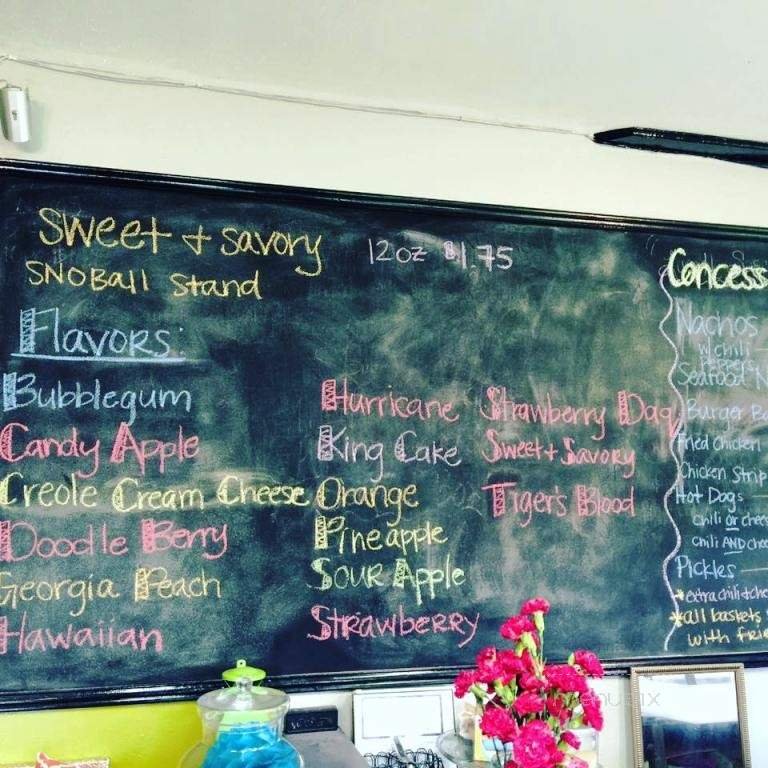 Sweet + Savory
SNOBall Stand
12oz $1.75
Flavors:
Bubblegum
Candy Apple
Creole Cream Cheese
Doodle Berry
Georgia Peach
Hawaiian
Hurricane
King Cake
Orange
Pineapple
Sour Apple
Strawberry
Strawberry Daq
Sweet + Savory
Tiger's Blood
Concess
Nachos
w/ chili
peppers
Seafood N
Burger Ba
Fried Chicken
Chicken Strip
Hot Dogs
chili or chees
chili AND chee
Pickles
*extra chili + che
*all baskets
with frie